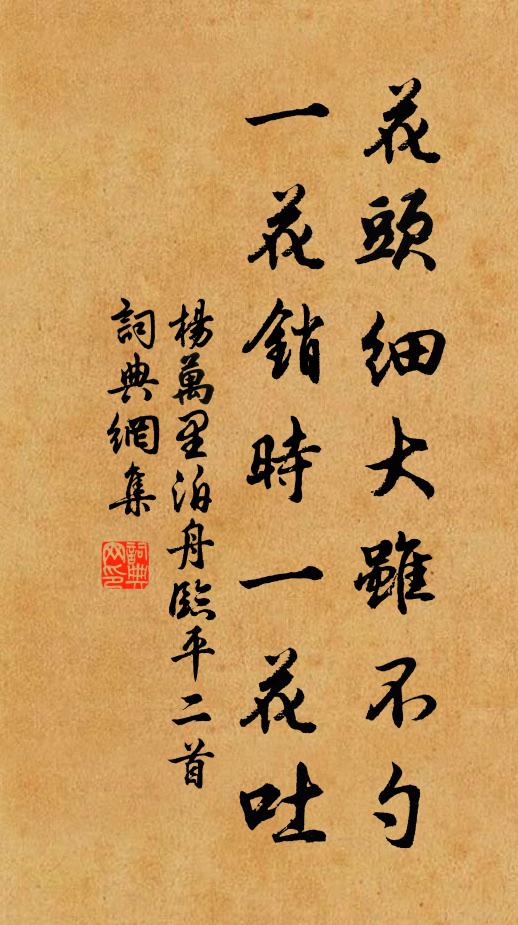 花頭細大雖不勻
一花銷時一花吐
楊萬里泊舟臨平二首
詞典網集
詞典网印